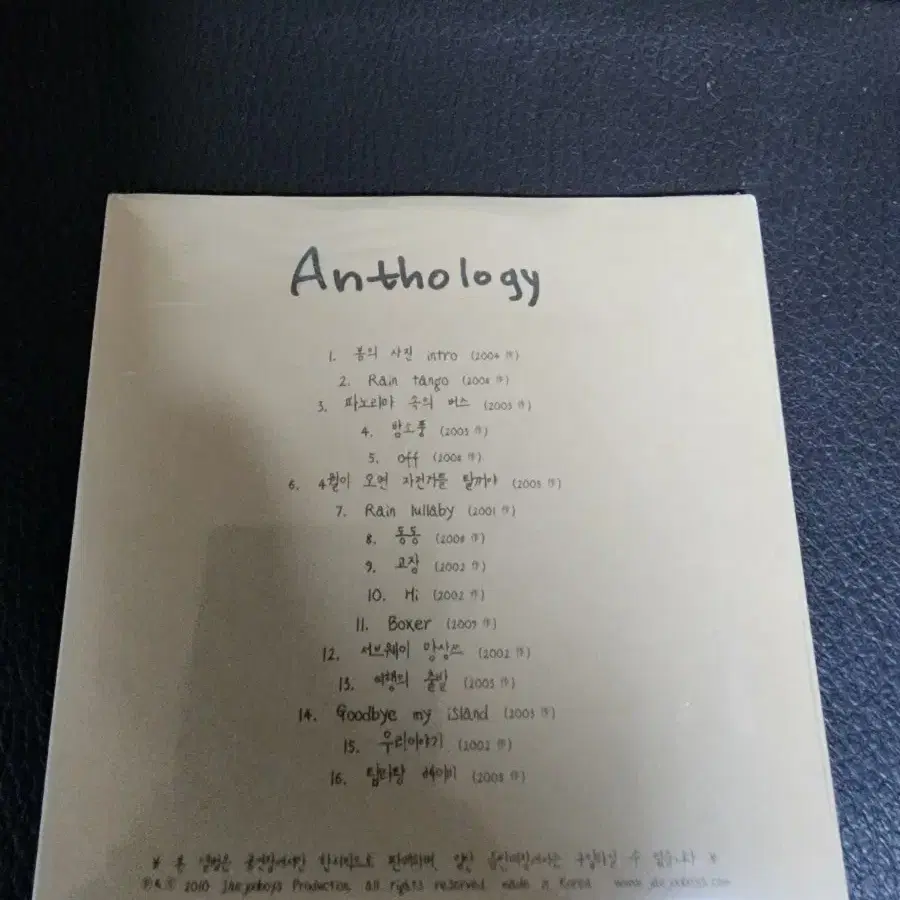 Anthology
1. 봄의 사진 intro (2004 作)
2. Rain tango (2006 作)
3. 파노라마 속의 버스 (2003 作)
4. 밤소풍 (2003 作)
5. off (2008 作)
6. 4월이 오면 자전거를 탈꺼야 (2003 作)
7. Rain lullaby (2001 作)
8. 동동 (2008 作)
9. 고장 (2002 作)
10. Hi (2002 作)
11. Boxer (2009 作)
12. 서브웨이 망상쓰 (2002 作)
13. 여행의 출발 (2003 作)
14. Goodbye my island (2003 作)
15. 우리이야기 (2002 作)
16. 팀버탕 베이비 (2008 作)
* 본 앨범은 공연장에서만 한시적으로 판매하며, 일반 음반매장에서는 구입하실 수 없습니다 *
2010 Production all rights reserved. made in Korea